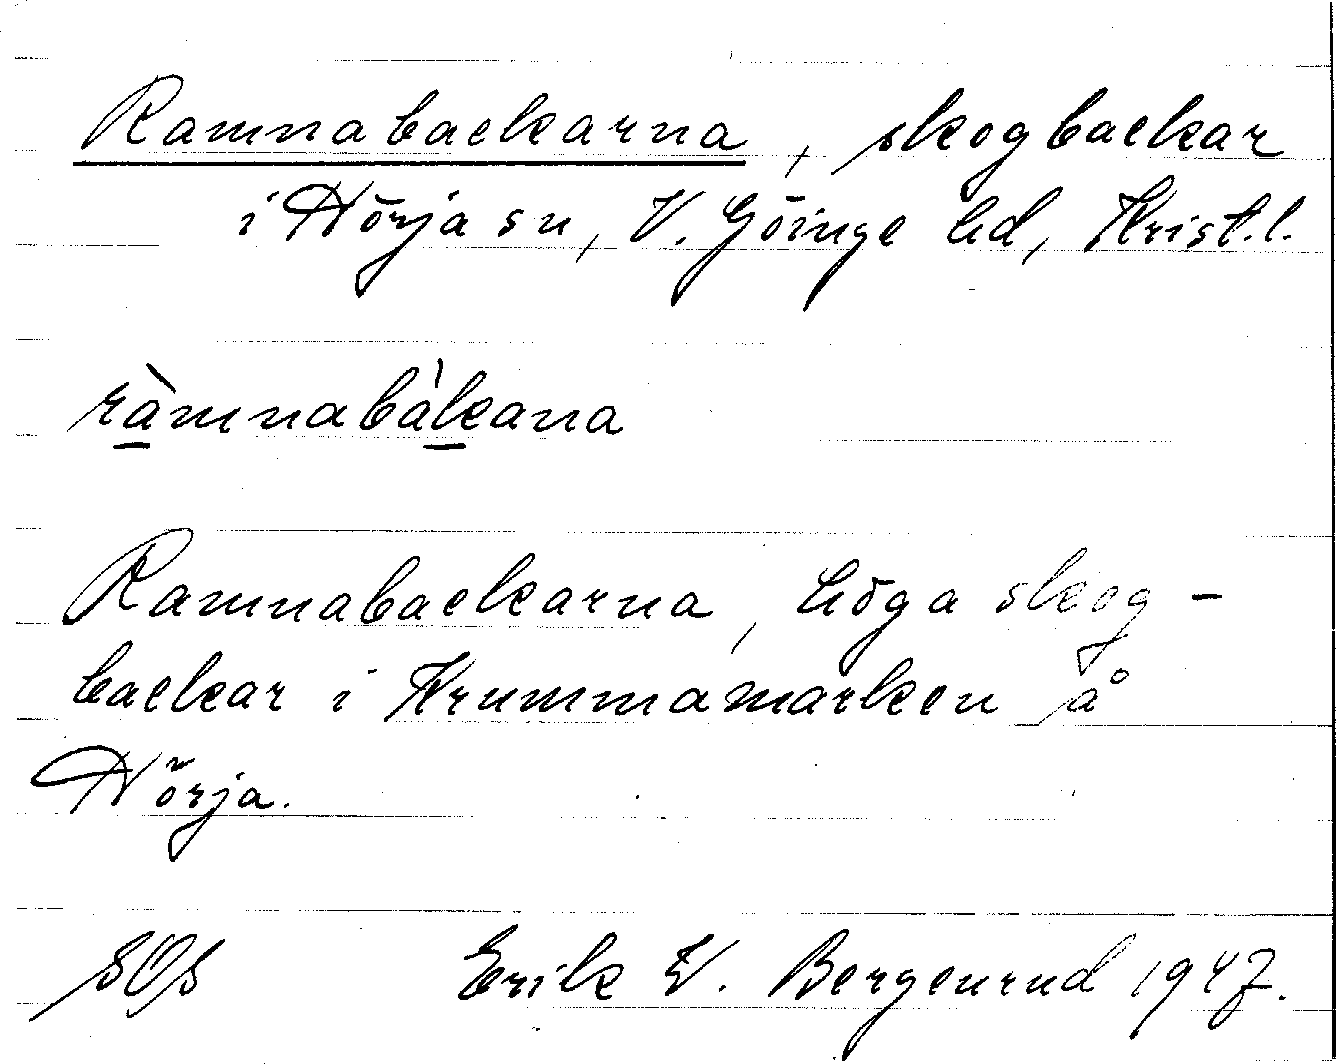 Ramnabackarna, skogbackar
i Hörja sn, V. Göinge hd, Krist.l.
ràmnabàkana
Ramnabackarna, höga skog-
backar i Krummamarken å
Hörja.
SOS Erik W. Bergenrud 1947.